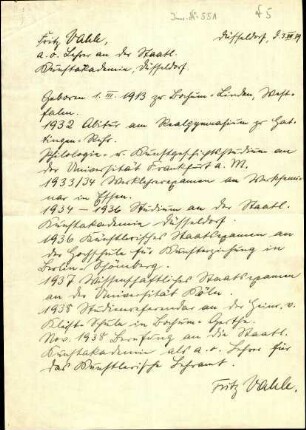 Fritz Vahle,
a. o. Lehrer an der Staatl.
Kunstakademie, Düsseldorf.
Düsseldorf, d.
Geboren 1. III. 1913 zu Bochum-Linden, West-
falen.
1932 Abitur am Realgymnasium zu Hat-
tingen-Ruhr.
Philologie- u. Kunstgeschichtsstudium an
der Universität Frankfurt a. M.
1933/34 Werklehrerexamen am Werksemi-
nar in Essen.
1934-1936 Studium an der Staatl.
Kunstakademie Düsseldorf.
1936 Künstlerisches Staatsexamen an
der Hochschule für Kunsterziehung in
Berlin-Schöneberg.
1937 Wissenschaftliches Staatsexamen
an der Universität Köln.
1938 Studienreferendar an der Heinr. v.
Kleist-Schule in Bochum-Gerthe.
Nov. 1938 Berufung an die Staatl.
Kunstakademie als a. o. Lehrer für
das Künstlerische Lehramt.
Fritz Vahle.